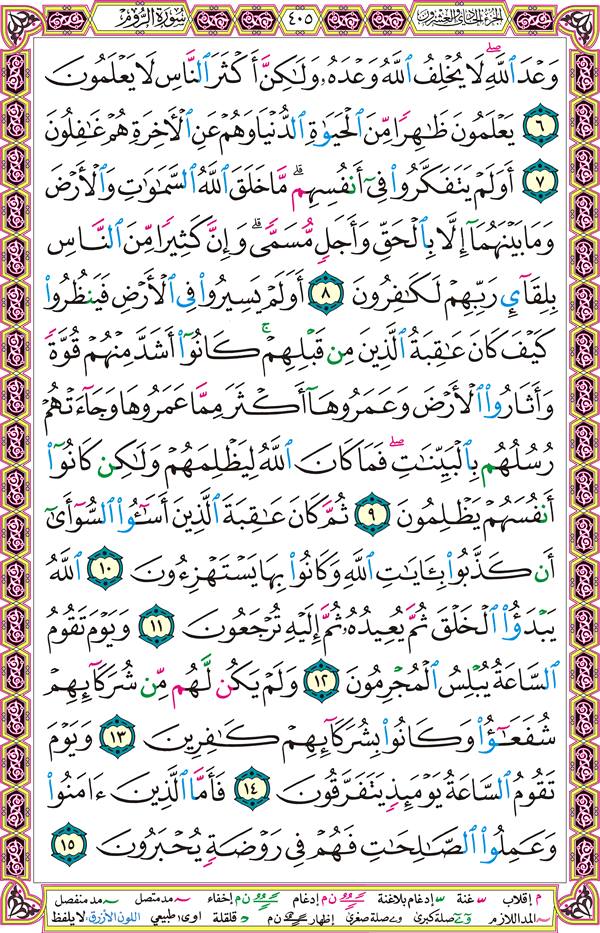 الجزء الحادي والعشرون ٤٠٥ سورة الروم
وَعْدَ ٱللَّهِۖ لَا يُخْلِفُ ٱللَّهُ وَعْدَهُۥ وَلَٰكِنَّ أَكْثَرَ ٱلنَّاسِ لَا يَعْلَمُونَ
٦ يَعْلَمُونَ ظَٰهِرًا مِّنَ ٱلْحَيَوٰةِ ٱلدُّنْيَا وَهُمْ عَنِ ٱلْأَخِرَةِ هُمْ غَٰفِلُونَ
٧ أَوَلَمْ يَتَفَكَّرُوا۟ فِىٓ أَنفُسِهِمۗ مَّا خَلَقَ ٱللَّهُ ٱلسَّمَٰوَٰتِ وَٱلْأَرْضَ
وَمَا بَيْنَهُمَآ إِلَّا بِٱلْحَقِّ وَأَجَلٍ مُّسَمًّىۗ وَإِنَّ كَثِيرًا مِّنَ ٱلنَّاسِ
بِلِقَآئِ رَبِّهِمْ لَكَٰفِرُونَ ٨ أَوَلَمْ يَسِيرُوا۟ فِى ٱلْأَرْضِ فَيَنظُرُوا۟
كَيْفَ كَانَ عَٰقِبَةُ ٱلَّذِينَ مِن قَبْلِهِمْۚ كَانُوٓا۟ أَشَدَّ مِنْهُمْ قُوَّةً
وَأَثَارُوا۟ ٱلْأَرْضَ وَعَمَرُوهَآ أَكْثَرَ مِمَّا عَمَرُوهَا وَجَآءَتْهُمْ
رُسُلُهُم بِٱلْبَيِّنَٰتِۖ فَمَا كَانَ ٱللَّهُ لِيَظْلِمَهُمْ وَلَٰكِن كَانُوٓا۟
أَنفُسَهُمْ يَظْلِمُونَ ٩ ثُمَّ كَانَ عَٰقِبَةَ ٱلَّذِينَ أَسَٰٓـُٔوا۟ ٱلسُّوٓأَىٰٓ
أَن كَذَّبُوا۟ بِـَٔايَٰتِ ٱللَّهِ وَكَانُوا۟ بِهَا يَسْتَهْزِءُونَ ١٠ ٱللَّهُ
يَبْدَؤُا۟ ٱلْخَلْقَ ثُمَّ يُعِيدُهُۥ ثُمَّ إِلَيْهِ تُرْجَعُونَ ١١ وَيَوْمَ تَقُومُ
ٱلسَّاعَةُ يُبْلِسُ ٱلْمُجْرِمُونَ ١٢ وَلَمْ يَكُن لَّهُم مِّن شُرَكَآئِهِمْ
شُفَعَٰٓؤُا۟ وَكَانُوا۟ بِشُرَكَآئِهِمْ كَٰفِرِينَ ١٣ وَيَوْمَ
تَقُومُ ٱلسَّاعَةُ يَوْمَئِذٍ يَتَفَرَّقُونَ ١٤ فَأَمَّا ٱلَّذِينَ ءَامَنُوا۟
وَعَمِلُوا۟ ٱلصَّٰلِحَٰتِ فَهُمْ فِى رَوْضَةٍ يُحْبَرُونَ ١٥
م إقلاب غنة إدغام بلاغنة ن م إدغام ن م إخفاء مد متصل مد منفصل
المد اللازم صلة كبرى صلة صغرى إظهار ن م قلقلة اوى: طبيعي اللون الأزرق: لا يلفظ